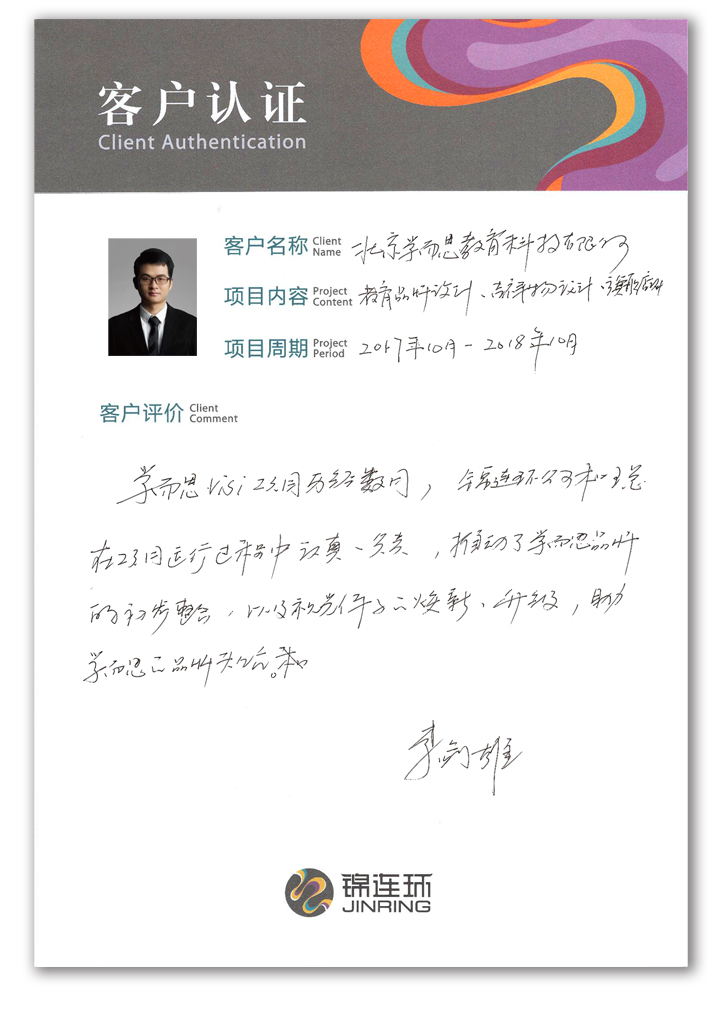 客户认证
Client Authentication
客户名称 Client Name 北京学而思教育科技有限公司
项目内容 Project Content 教育品牌设计、吉祥物设计、旗舰店
项目周期 Project Period 2017年10月-2018年10月
客户评价 Client Comment
学而思 Visi 项目历经数月, 锦连环公司和
在项目运行过程中认真、负责,推动了学而思品牌
的初步整合、以及视觉体系的焕新、升级,助力
学而思品牌
李剑雄
锦连环
JINRING